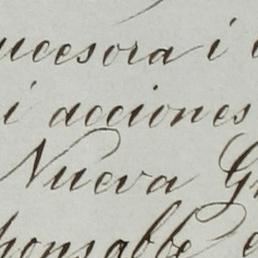 ucesora i
i acciones
Nueva G
ponsable